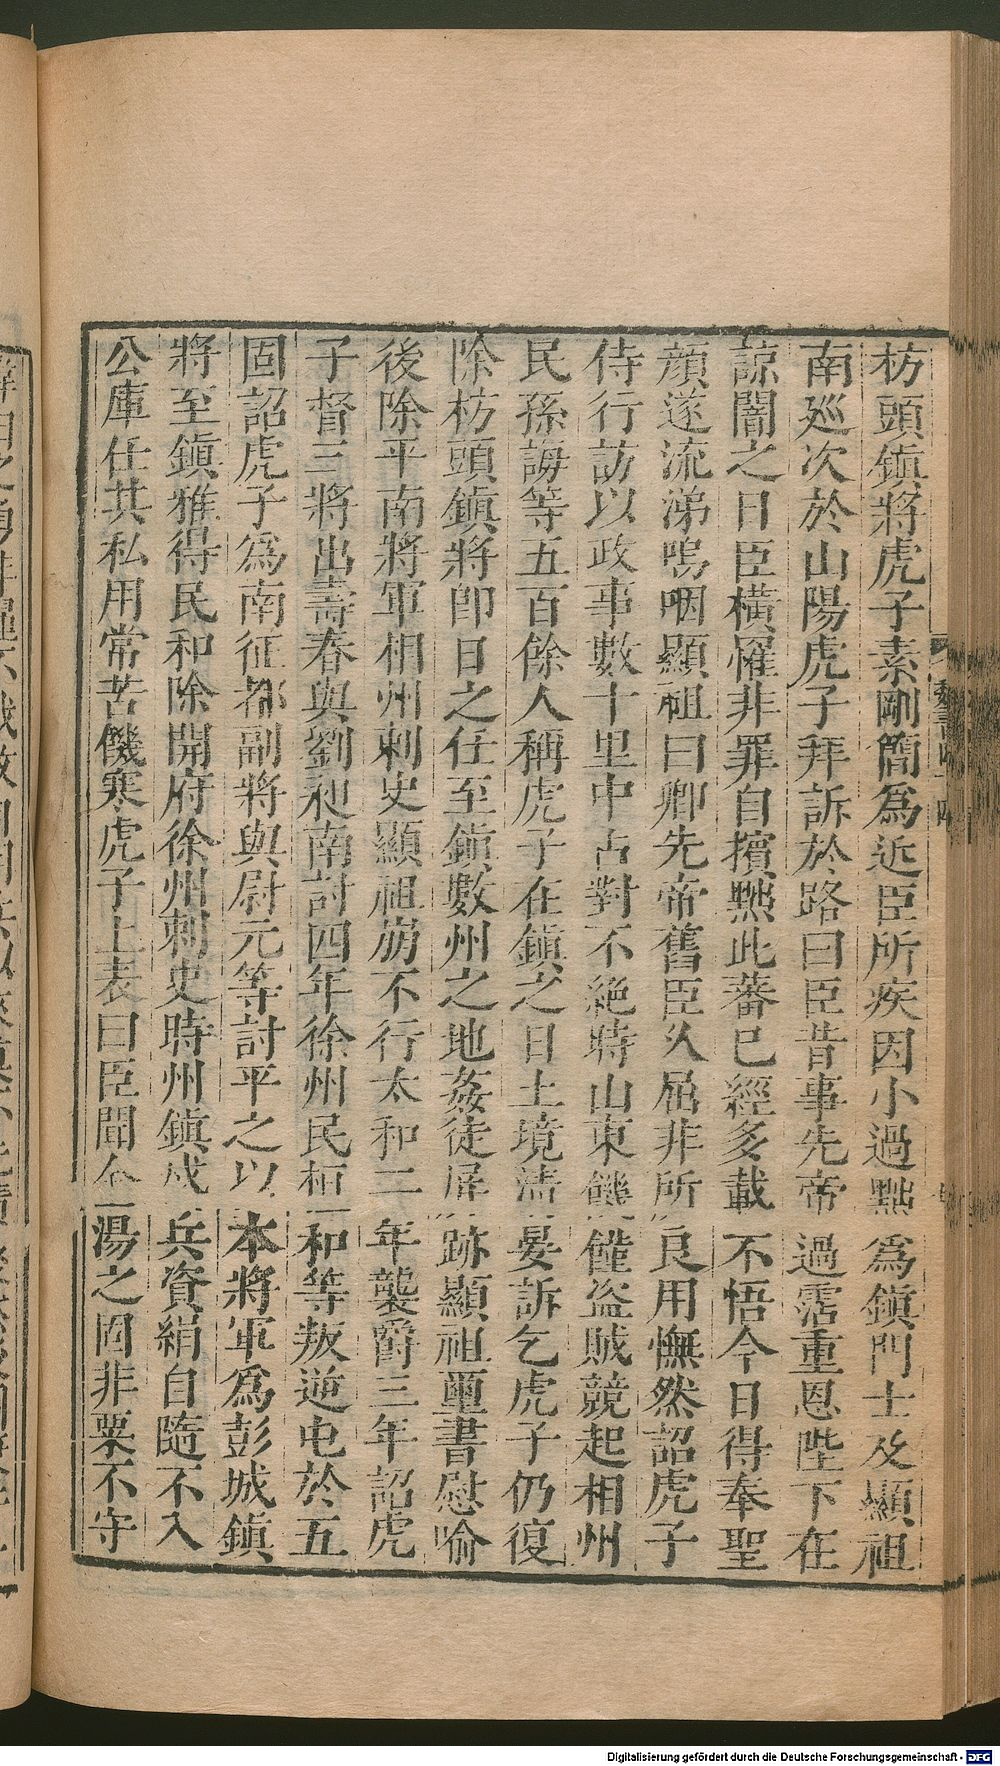 枋頭鎮將虎子素剛簡為近臣所疾因小過黜為鎮門士及顯祖
南廵次於山陽虎子拜訴於路曰臣昔事先帝過霑重恩陛下在
諒闇之日臣橫罹非罪自擯黜此蕃已經多載不悟今日得奉聖
顔遂流涕嗚咽顯祖曰卿先帝舊臣乆屈非所良用憮然詔虎子
侍行訪以政事數十里中占對不絶時山東饑饉盜賊競起相州
民孫誨等五百餘人稱虎子在鎮之日土境清晏訴乞虎子仍復
除枋頭鎮將即日之任至鎮數州之地姦徒屏跡顯祖璽書慰喻
後除平南將軍相州刺史顯祖崩不行太和二年襲爵三年詔虎
子督三將出壽春與劉昶南討四年徐州民桓和等叛逆屯於五
固詔虎子為南征都副將與尉元等討平之以本將軍為彭城鎮
將至鎮雅得民和除開府徐州刺史時州鎮戍兵資絹自隨不入
公庫任其私用常苦饑寒虎子上表曰臣聞金湯之固非粟不守
魏書四十四
Digitalisierung gefördert durch die Deutsche Forschungsgemeinschaft - DFG